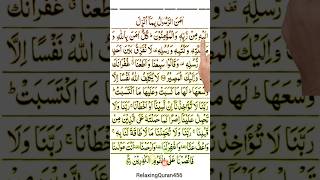 اٰمَنَ الرَّسُوْلُ بِمَاۤ اُنْزِلَ
اِلَيْهِ مِنْ رَّبِّهٖ وَالْمُؤْمِنُوْنَ ؕ كُلٌّ اٰمَنَ بِاللّٰهِ
وَكُتُبِهٖ وَرُسُلِهٖ ۫ لَا نُفَرِّقُ بَيْنَ
رُّسُلِهٖ ۫ وَقَالُوْا سَمِعْنَا وَاَطَعْنَا ٭ غُفْرَانَكَ
وَاِلَيْكَ الْمَصِيْرُ لَا يُكَلِّفُ اللّٰهُ نَفْسًا اِلَّا
وُسْعَهَا ؕ لَهَا مَا كَسَبَتْ وَعَلَيْهَا مَا اكْتَسَبَتْ ؕ
رَبَّنَا لَا تُؤَاخِذْنَاۤ اِنْ نَّسِيْنَاۤ اَوْ اَخْطَاْنَا ۚ رَبَّنَا وَلَا
تَحْمِلْ عَلَيْنَاۤ اِصْرًا كَمَا حَمَلْتَهٗ عَلَى الَّذِيْنَ مِنْ
قَبْلِنَا ۚ رَبَّنَا وَلَا تُحَمِّلْنَا مَا لَا طَاقَةَ لَنَا بِهٖ ۚ
وَاعْفُ عَنَّا وَاغْفِرْ لَنَا وَارْحَمْنَا اَنْتَ مَوْلٰىنَا
فَانْصُرْنَا عَلَى الْقَوْمِ الْكٰفِرِيْنَ
RelaxingQuran456